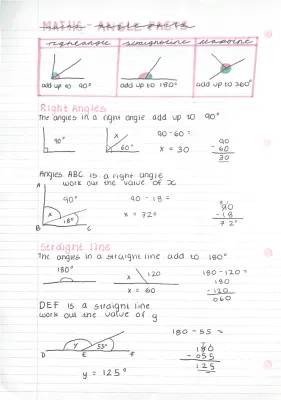 MATHS - ANGLE FACTS
right angle
straight line
add up to 90°
add up to 180°
add up to 360°
Right Angles
The angles in a right angle add up to 90°
90°
x
60°
90-60=
x = 30
90
-60
30
Angles ABC is a right angle
work out the value of x
A
90°
x
18°
B
C
90 - 18 =
x = 72°
90
-18
72°
Straight line
The angles in a straight line add to 180°
180°
x
120
x = 60
180-120=
180
-120
060
DEF is a straight line
work out the value of y
y
D
E
F
y = 125°
180-55=
180
-055
125